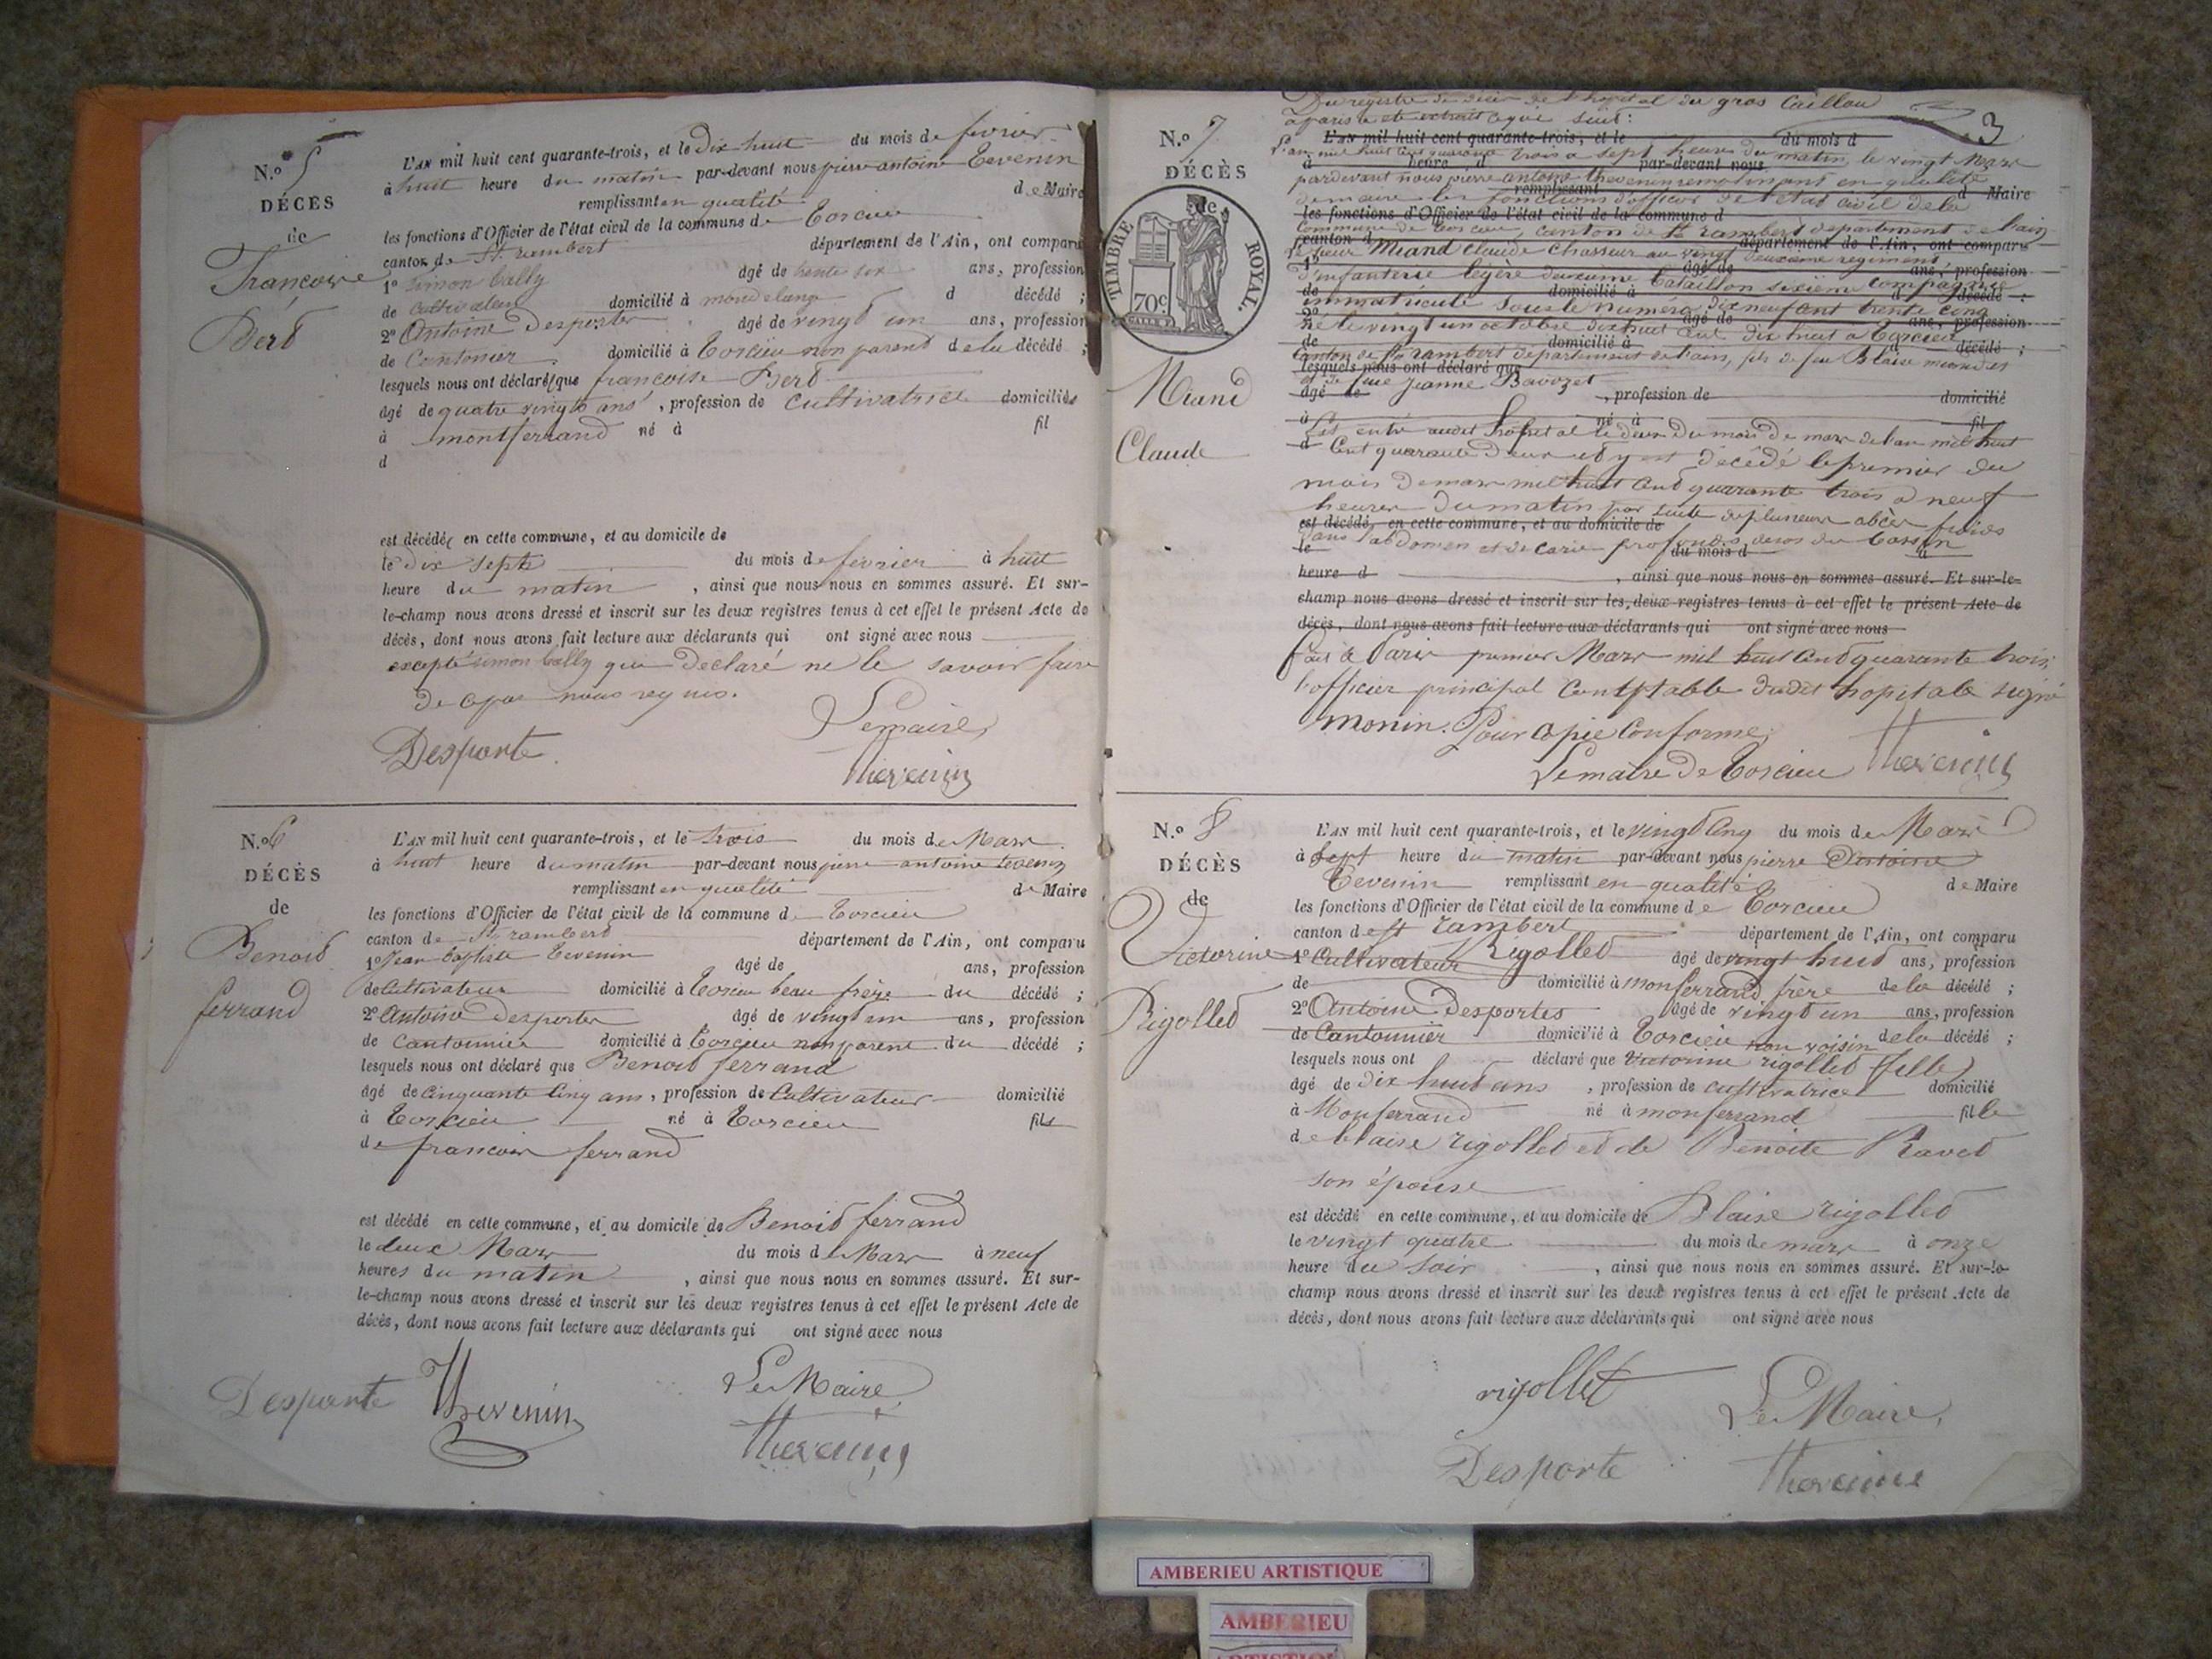 N.º 5
DÉCÈS
de
Françoise
Bert
L'AN mil huit cent quarante-trois, et le dix huit du mois de fevrier
à huit heure du matin par-devant nous pierre antoine tevenin
remplissant en qualité de Maire
les fonctions d'Officier de l'état civil de la commune de torcieu
canton de St rambert département de l'Ain, ont comparu
1º simon bally agé de trente six ans, profession
de cultivateur domicilié à d décédé ;
2º Antoine Desportes agé de vingt un ans, profession
de Cantonier domicilié à torcieu non parent de la décédé ;
lesquels nous ont déclaré que francoise Bert
agé de quatre vingts ans, profession de cultivatrice domicilié
à montferrand né à fil
d
est décédé en cette commune, et au domicile de
le dix sept du mois de fevrier à huit
heure du matin, ainsi que nous nous en sommes assuré. Et sur-
le-champ nous avons dressé et inscrit sur les deux registres tenus à cet effet le présent Acte de
décès, dont nous avons fait lecture aux déclarants qui ont signé avec nous
excepté simon bally qui a declaré ne le savoir faire
de ce par nous requis.
Le maire
Desporte
thevenin
N.º 6
DÉCÈS
de
Benoit
ferrand
L'AN mil huit cent quarante-trois, et le trois du mois de Mars
à huit heure du matin par-devant nous pierre antoine tevenin
remplissant en qualité de Maire
les fonctions d'Officier de l'état civil de la commune de torcieu
canton de St rambert département de l'Ain, ont comparu
1º Jean baptiste tevenin agé de ans, profession
de Cultivateur domicilié à torcieu beau frère du décédé ;
2º Antoine Desportes agé de vingt un ans, profession
de Cantonnier domicilié à torcieu non parent du décédé ;
lesquels nous ont déclaré que Benoit ferrand
agé de cinquante cinq ans, profession de Cultivateur domicilié
à torcieu né à torcieu fils
de francois ferrand
est décédé en cette commune, et au domicile de Benoit ferrand
le deux Mars du mois de Mars à neuf
heures du matin, ainsi que nous nous en sommes assuré. Et sur-
le-champ nous avons dressé et inscrit sur les deux registres tenus à cet effet le présent Acte de
décès, dont nous avons fait lecture aux déclarants qui ont signé avec nous
Desporte Thevenin Le Maire
thevenin
3
N.º 7
DÉCÈS
de
TIMBRE ROYAL.
70c.
Miand
Claude
Du registre de décès de l'hopital du gros Caillou
à paris a été extrait ce qui suit :
L'AN mil huit cent quarante-trois, et le du mois d
L'an mil huit cent quarante trois a sept heures du matin, le vingt Mars
à heure d par-devant nous
pardevant nous pierre antoine thevenin remplissant en qualité
remplissant d Maire
de maire les fonctions d'officier de l'état civil de la
les fonctions d'Officier de l'état civil de la commune d
Commune de torcieu, canton de St rambert département de l'ain
canton d département de l'Ain, ont comparu
le sieur Miand Claude Chasseur au vingt deuxieme regiment
1º agé de ans, profession
d'infanterie legère deuxieme bataillon sixième compagnie
de domicilié à d décédé ;
immatriculé sous le numéro dix neuf cent trente cinq
2º agé de ans, profession
né le vingt un octobre dix huit cent dix huit a torcieu
de domicilié à d décédé ;
Canton de St rambert département de l'ain, fils de feu Blaise
lesquels nous ont déclaré que
et de feue Jeanne Bavozet
agé de , profession de domicilié
à né à fil
Est entré audit hopital le deux du mois de mars de l'an mil huit
d cent quarante deux et y est décédé le premier du
mois de mars mil huit cent quarante trois a neuf
heures du matin par suite de plusieurs abcès froids
est décédé en cette commune, et au domicile de
dans l'abdomen et de carie profonde des os du bassin
le du mois d à
heure d , ainsi que nous nous en sommes assuré. Et sur-le-
champ nous avons dressé et inscrit sur les deux registres tenus à cet effet le présent Acte de
décès, dont nous avons fait lecture aux déclarants qui ont signé avec nous
fait à Paris premier Mars mil huit cent quarante trois
l'officier principal Comptable dudit hopitale signé
monin. Pour copie Conforme,
Le maire de torcieu thevenin
N.º 8
DÉCÈS
de
Victorine
Rigollet
L'AN mil huit cent quarante-trois, et le vingt cinq du mois de Mars
à sept heure du matin par-devant nous pierre Antoine
tevenin remplissant en qualité de Maire
les fonctions d'Officier de l'état civil de la commune de torcieu
canton de st rambert département de l'Ain, ont comparu
1º Cultivateur Rigollet agé de vingt huit ans, profession
de domicilié à monferrand frère de la décédé ;
2º Antoine Desportes agé de vingt un ans, profession
de Cantonnier domicilié à torcieu non voisin de la décédé ;
lesquels nous ont déclaré que victorine rigollet fille
agé de dix huit ans, profession de cultivatrice domicilié
à Monferrand né à monferrand fille
de blaise rigollet et de Benoite Ravet
son épouse
est décédé en cette commune, et au domicile de Blaise rigollet
le vingt quatre du mois de mars à onze
heure du soir, ainsi que nous nous en sommes assuré. Et sur-le-
champ nous avons dressé et inscrit sur les deux registres tenus à cet effet le présent Acte de
décès, dont nous avons fait lecture aux déclarants qui ont signé avec nous
rigollet Le Maire,
Desporte thevenin
AMBERIEU ARTISTIQUE
AMBERIEU
ARTISTIQUE